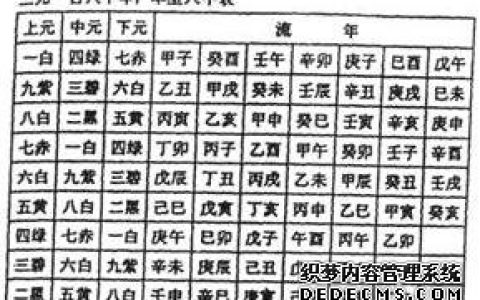 上元 中元 下元 流 年
一白 四绿 七赤 甲子 癸酉 壬午 辛卯 庚子 巳酉 戊午
九紫 三碧 六白 乙丑 甲戌 癸未 壬辰 辛丑 庚戌 巳未
八白 二黑 五黄 丙寅 乙亥 甲申 癸巳 壬寅 辛亥 庚申
七赤 一白 四绿 丁卯 丙子 乙酉 甲午 癸卯 壬子 辛酉
六白 九紫 三碧 戊辰 丁丑 丙戌 乙未 甲辰 癸丑 壬戌
五黄 八白 二黑 己巳 戊寅 丁亥 丙申 乙巳 甲寅 癸亥
四绿 七赤 一白 庚午 巳卯 戊子 午酉 丙午 乙卯
三碧 六白 九紫 辛未 庚辰 己丑
二黑 五黄 八白 壬申 辛巳 庚寅
织梦内容管理系统
DEDECMS.COM